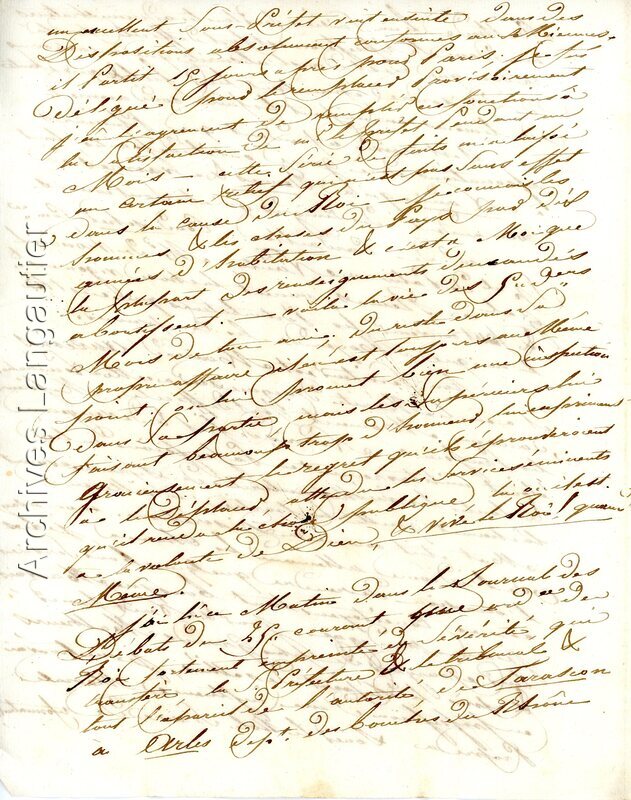 un excellent Sous Préfet vint ensuite dans des
Dispositions absolument conformes aux Miennes.
il Partit 15 jours après pour Paris, je fus
délégué pour le remplacer Provisoirement
j'eu l'agrement de remplir ces fonctions à
la Satisfaction de Préfet pendant un
Mois — cette Série de faits m'a laissé
un certain relief qui n'est pas Sans effet
dans la cause du Roi — je connais les
hommes & les choses du Pays par dix
années d'habitation & c'est à Moi que
la plupart des renseignements demandés
aboutissent. — voilà la vie des 5 ders
Mois de ton ami; Du reste dans Sa
propre affaire il en est toujours au Même
point. on lui promet bien une inspection
dans Sa partie, mais les Supérieurs lui
faisant beaucoup trop d'honneur, lui expriment
gracieusement le regret qu'ils éprouveroient
à le Déplacer, attendu les Services éminents
qu'il rend à la chose publique
à la volonté de Dieu, & vive le Roi! quand
Même.
J'ai lû ce Matin dans le Journal des
Débats du 25 courant une ordce du
Roi fortement empreinte de Sévérité, qui
transfère la Ss Préfecture & le tribunal &
tout l'apareil de l'autorité de Tarascon
a Arles Dept. des bouches du Rhône
Archives Langautier